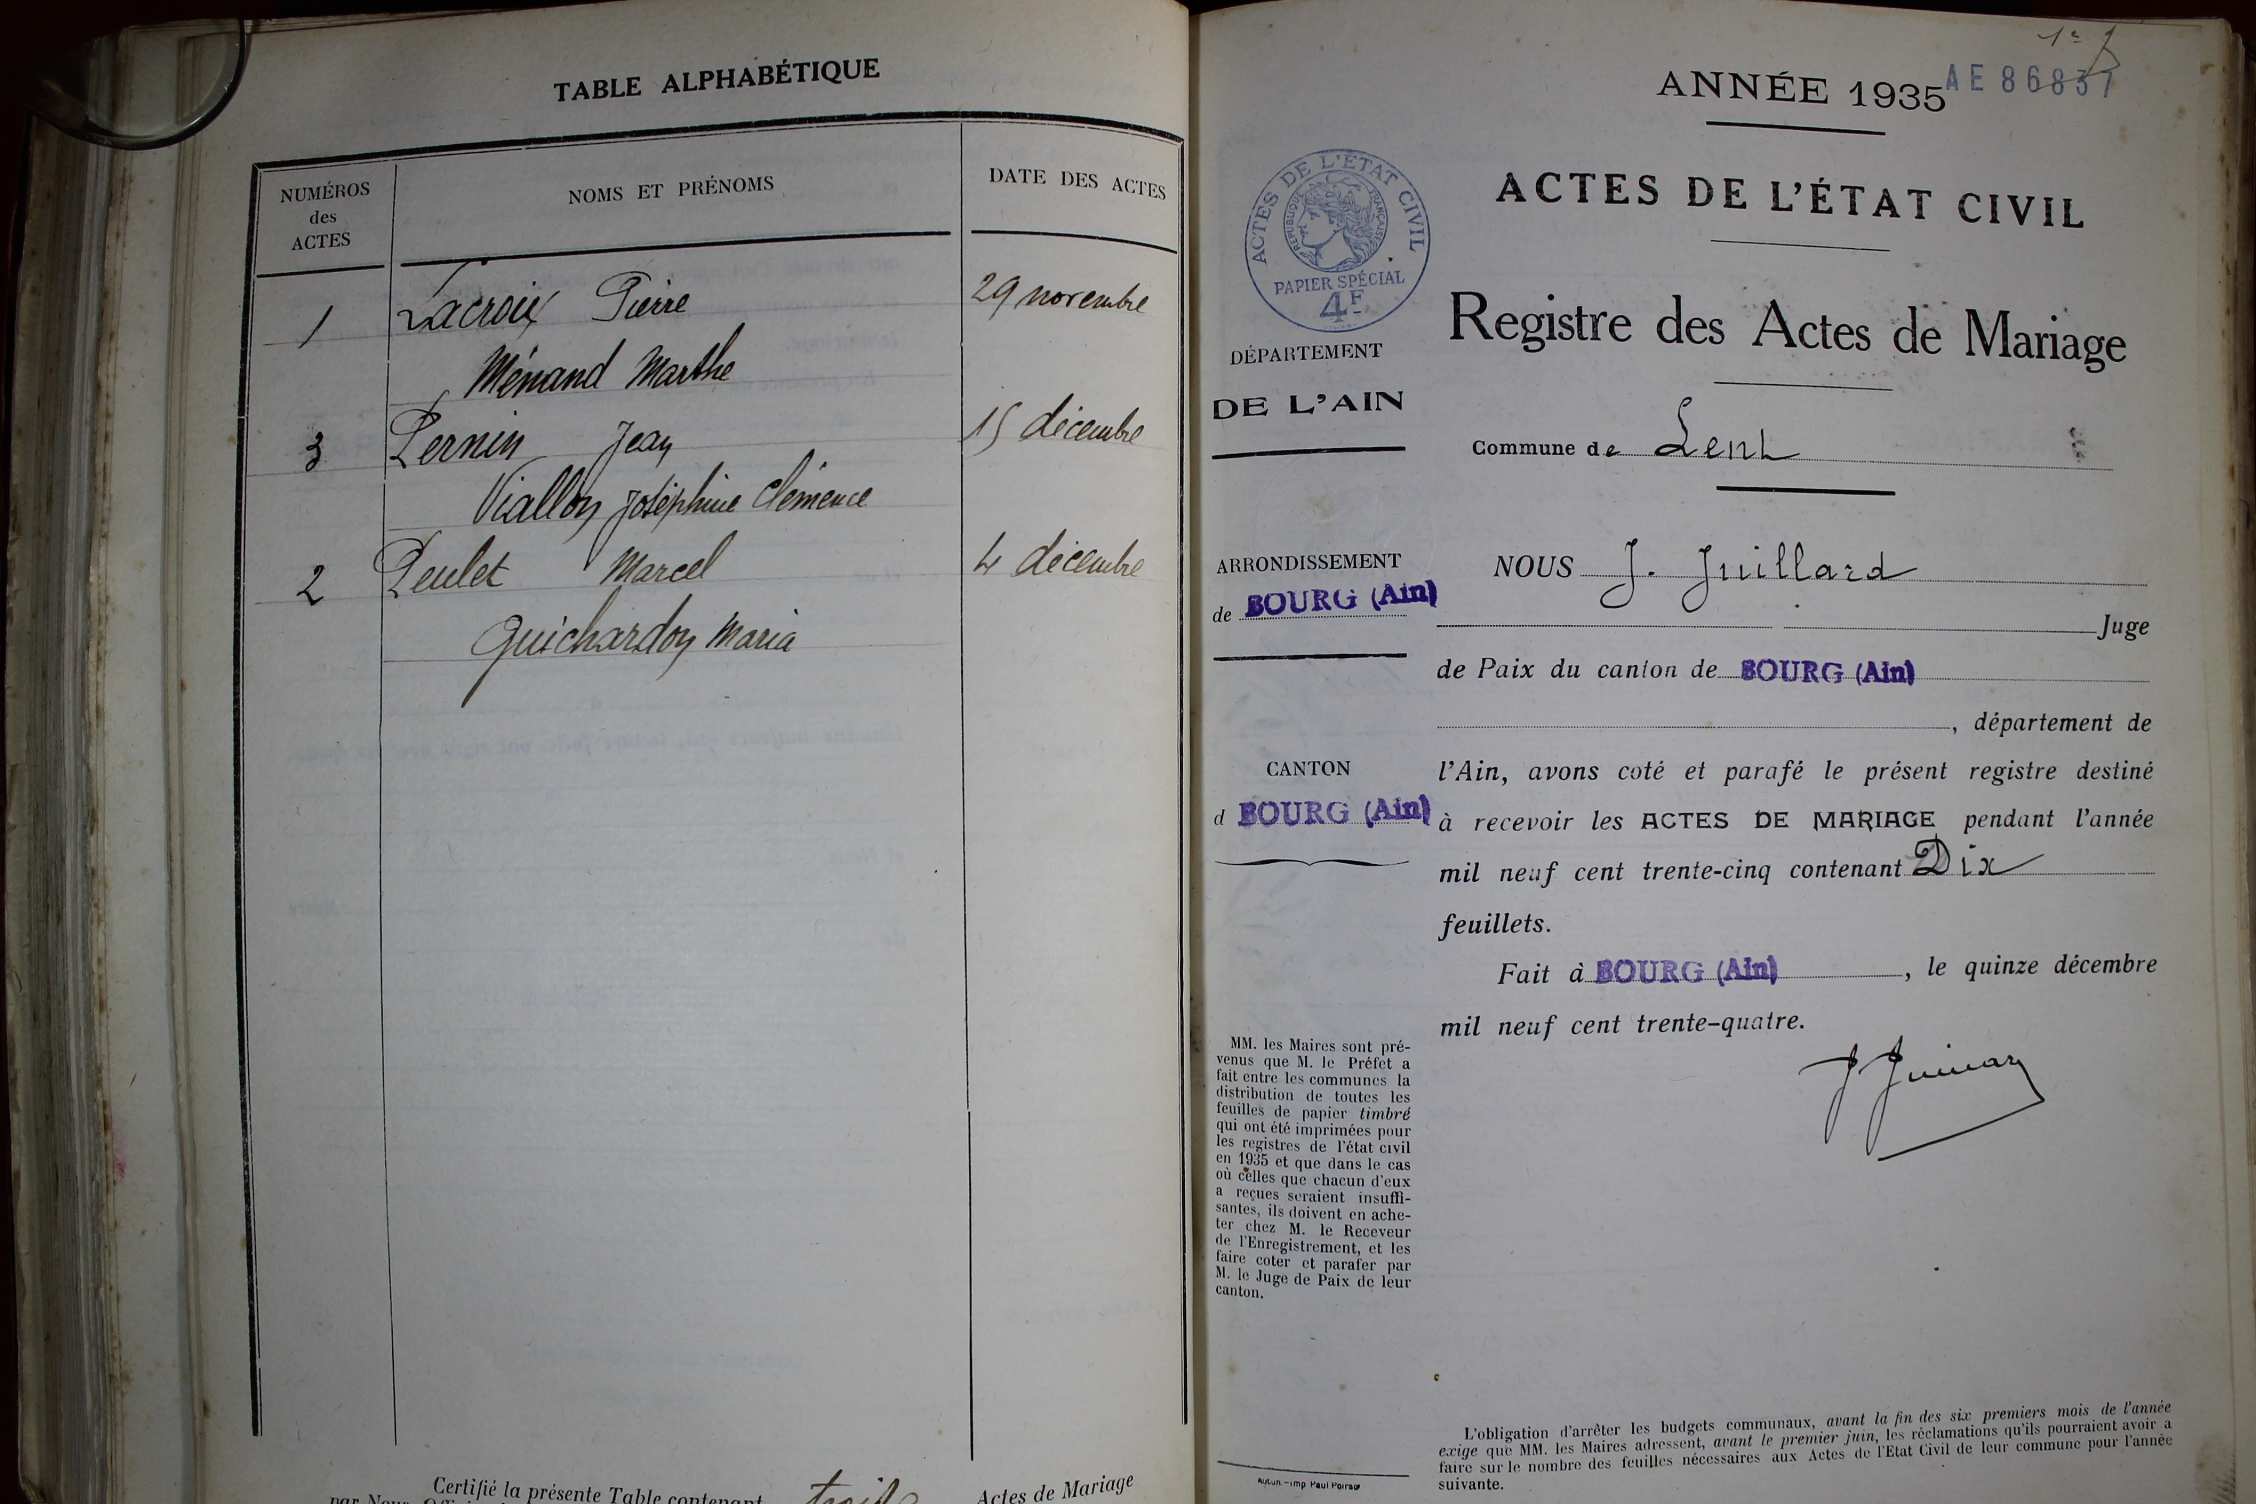 TABLE ALPHABÉTIQUE
NUMÉROS
des
ACTES
NOMS ET PRÉNOMS
DATE DES ACTES
1 Lacroix Pierre 29 novembre
Ménand Marthe
3 Pernin Jean 15 décembre
Viallon Joséphine Clémence
2 Peulet Marcel 4 décembre
Guichardon Maria
Certifié la présente Table contenant trois Actes de Mariage
par Nous
1er
ANNÉE 1935
AE 86837
ACTES DE L'ÉTAT CIVIL
RÉPUBLIQUE FRANÇAISE
PAPIER SPÉCIAL
4F
ACTES DE L'ÉTAT CIVIL
Registre des Actes de Mariage
DÉPARTEMENT
DE L'AIN
Commune de Lent
ARRONDISSEMENT
de BOURG (Ain)
CANTON
d BOURG (Ain)
NOUS J. Juillard
Juge
de Paix du canton de BOURG (Ain)
, département de
l'Ain, avons coté et parafé le présent registre destiné
à recevoir les ACTES DE MARIAGE pendant l'année
mil neuf cent trente-cinq contenant Dix
feuillets.
Fait à BOURG (Ain), le quinze décembre
mil neuf cent trente-quatre.
MM. les Maires sont pré-
venus que M. le Préfet a
fait entre les communes la
distribution de toutes les
feuilles de papier timbré
qui ont été imprimées pour
les registres de l'état civil
en 1935 et que dans le cas
où celles que chacun d'eux
a reçues seraient insuffi-
santes, ils doivent en ache-
ter chez M. le Receveur
de l'Enregistrement, et les
faire coter et parafer par
M. le Juge de Paix de leur
canton.
Autun. - Imp Paul Poirson
L'obligation d'arrêter les budgets communaux, avant la fin des six premiers mois de l'année
exige que MM. les Maires adressent, avant le premier juin, les réclamations qu'ils pourraient avoir à
faire sur le nombre des feuilles nécessaires aux Actes de l'Etat Civil de leur commune pour l'année
suivante.